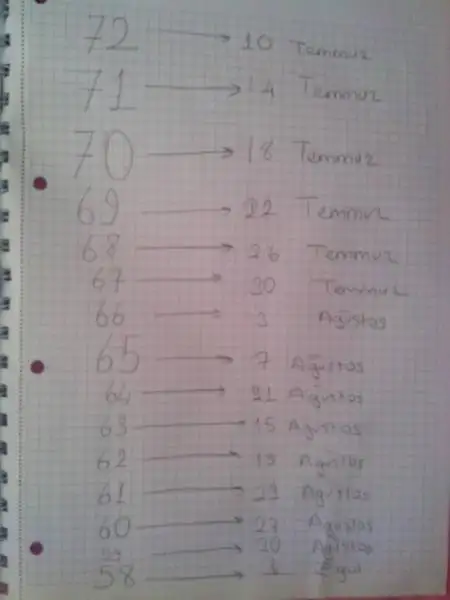 72 → 10 Temmuz
71 → 14 Temmuz
70 → 18 Temmuz
69 → 22 Temmuz
68 → 26 Temmuz
67 → 30 Temmuz
66 → 3 Ağustos
65 → 7 Ağustos
64 → 11 Ağustos
63 → 15 Ağustos
62 → 19 Ağustos
61 → 23 Ağustos
60 → 27 Ağustos
59 → 30 Ağustos
58 → 1 Eylül